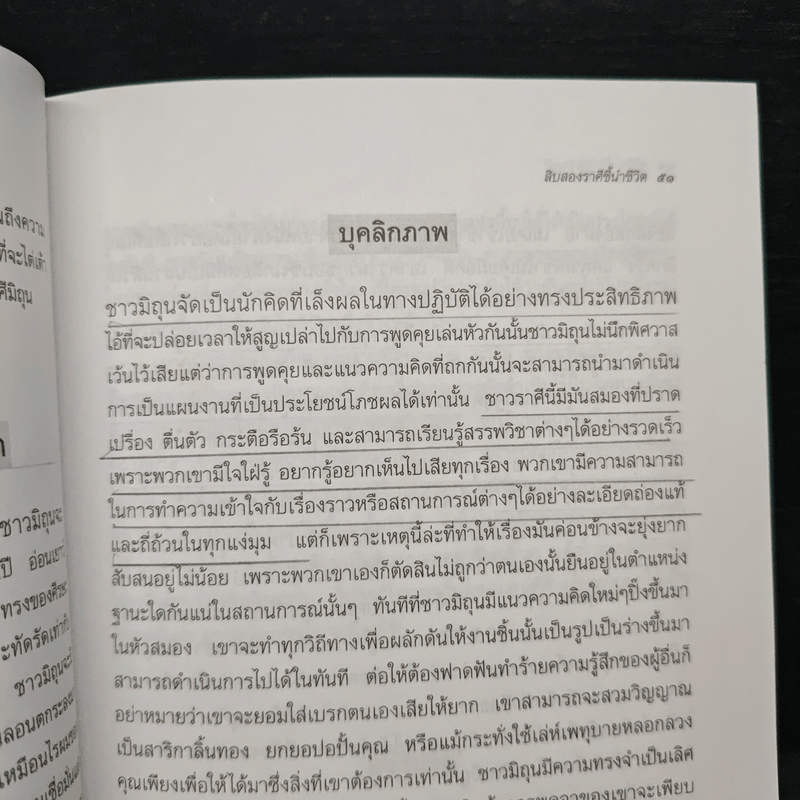 นถึงความ
ที่จะไต่เต้า
ศีมิถุน
ชาวมิถุนจะ
ปี อ่อนเยาว์
ทรงของศีรษะ
ะทัดรัดเท่ากับ
ชาวมิถุนจะมี
สิบสองราศีชี้นำชีวิต ๕๑
บุคลิกภาพ
ชาวมิถุนจัดเป็นนักคิดที่เล็งผลในทางปฏิบัติได้อย่างทรงประสิทธิภาพ
ไอ้ที่จะปล่อยเวลาให้สูญเปล่าไปกับการพูดคุยเล่นหัวกันนั้นชาวมิถุนไม่นึกพิศวาส
เว้นไว้เสียแต่ว่าการพูดคุยและแนวความคิดที่ถกกันนั้นจะสามารถนำมาดำเนิน
การเป็นแผนงานที่เป็นประโยชน์โภชผลได้เท่านั้น ชาวราศีนี้มีมันสมองที่ปราด
เปรื่อง ตื่นตัว กระตือรือร้น และสามารถเรียนรู้สรรพวิชาต่างๆได้อย่างรวดเร็ว
เพราะพวกเขามีใจใฝ่รู้ อยากรู้อยากเห็นไปเสียทุกเรื่อง พวกเขามีความสามารถ
ในการทำความเข้าใจกับเรื่องราวหรือสถานการณ์ต่างๆได้อย่างละเอียดถ่องแท้
และถี่ถ้วนในทุกแง่มุม แต่ก็เพราะเหตุนี้ล่ะที่ทำให้เรื่องมันค่อนข้างจะยุ่งยาก
สับสนอยู่ไม่น้อย เพราะพวกเขาเองก็ตัดสินไม่ถูกว่าตนเองนั้นยืนอยู่ในตำแหน่ง
ฐานะใดกันแน่ในสถานการณ์นั้นๆ ทันทีที่ชาวมิถุนมีแนวความคิดใหม่ๆปิ๊งขึ้นมา
ในหัวสมอง เขาจะทำทุกวิถีทางเพื่อผลักดันให้งานชิ้นนั้นเป็นรูปเป็นร่างขึ้นมา
สามารถดำเนินการไปได้ในทันที ต่อให้ต้องฟาดฟันทำร้ายความรู้สึกของผู้อื่นก็
อย่าหมายว่าเขาจะยอมใส่เบรกตนเองเสียให้ยาก เขาสามารถจะสวมวิญญาณ
เป็นสาริกาลิ้นทอง ยกยอปอปั้นคุณ หรือแม้กระทั่งใช้เล่ห์เพทุบายหลอกลวง
คุณเพียงเพื่อให้ได้มาซึ่งสิ่งที่เขาต้องการเท่านั้น ชาวมิถุนมีความทรงจำเป็นเลิศ
ของเขาจะเพียบ